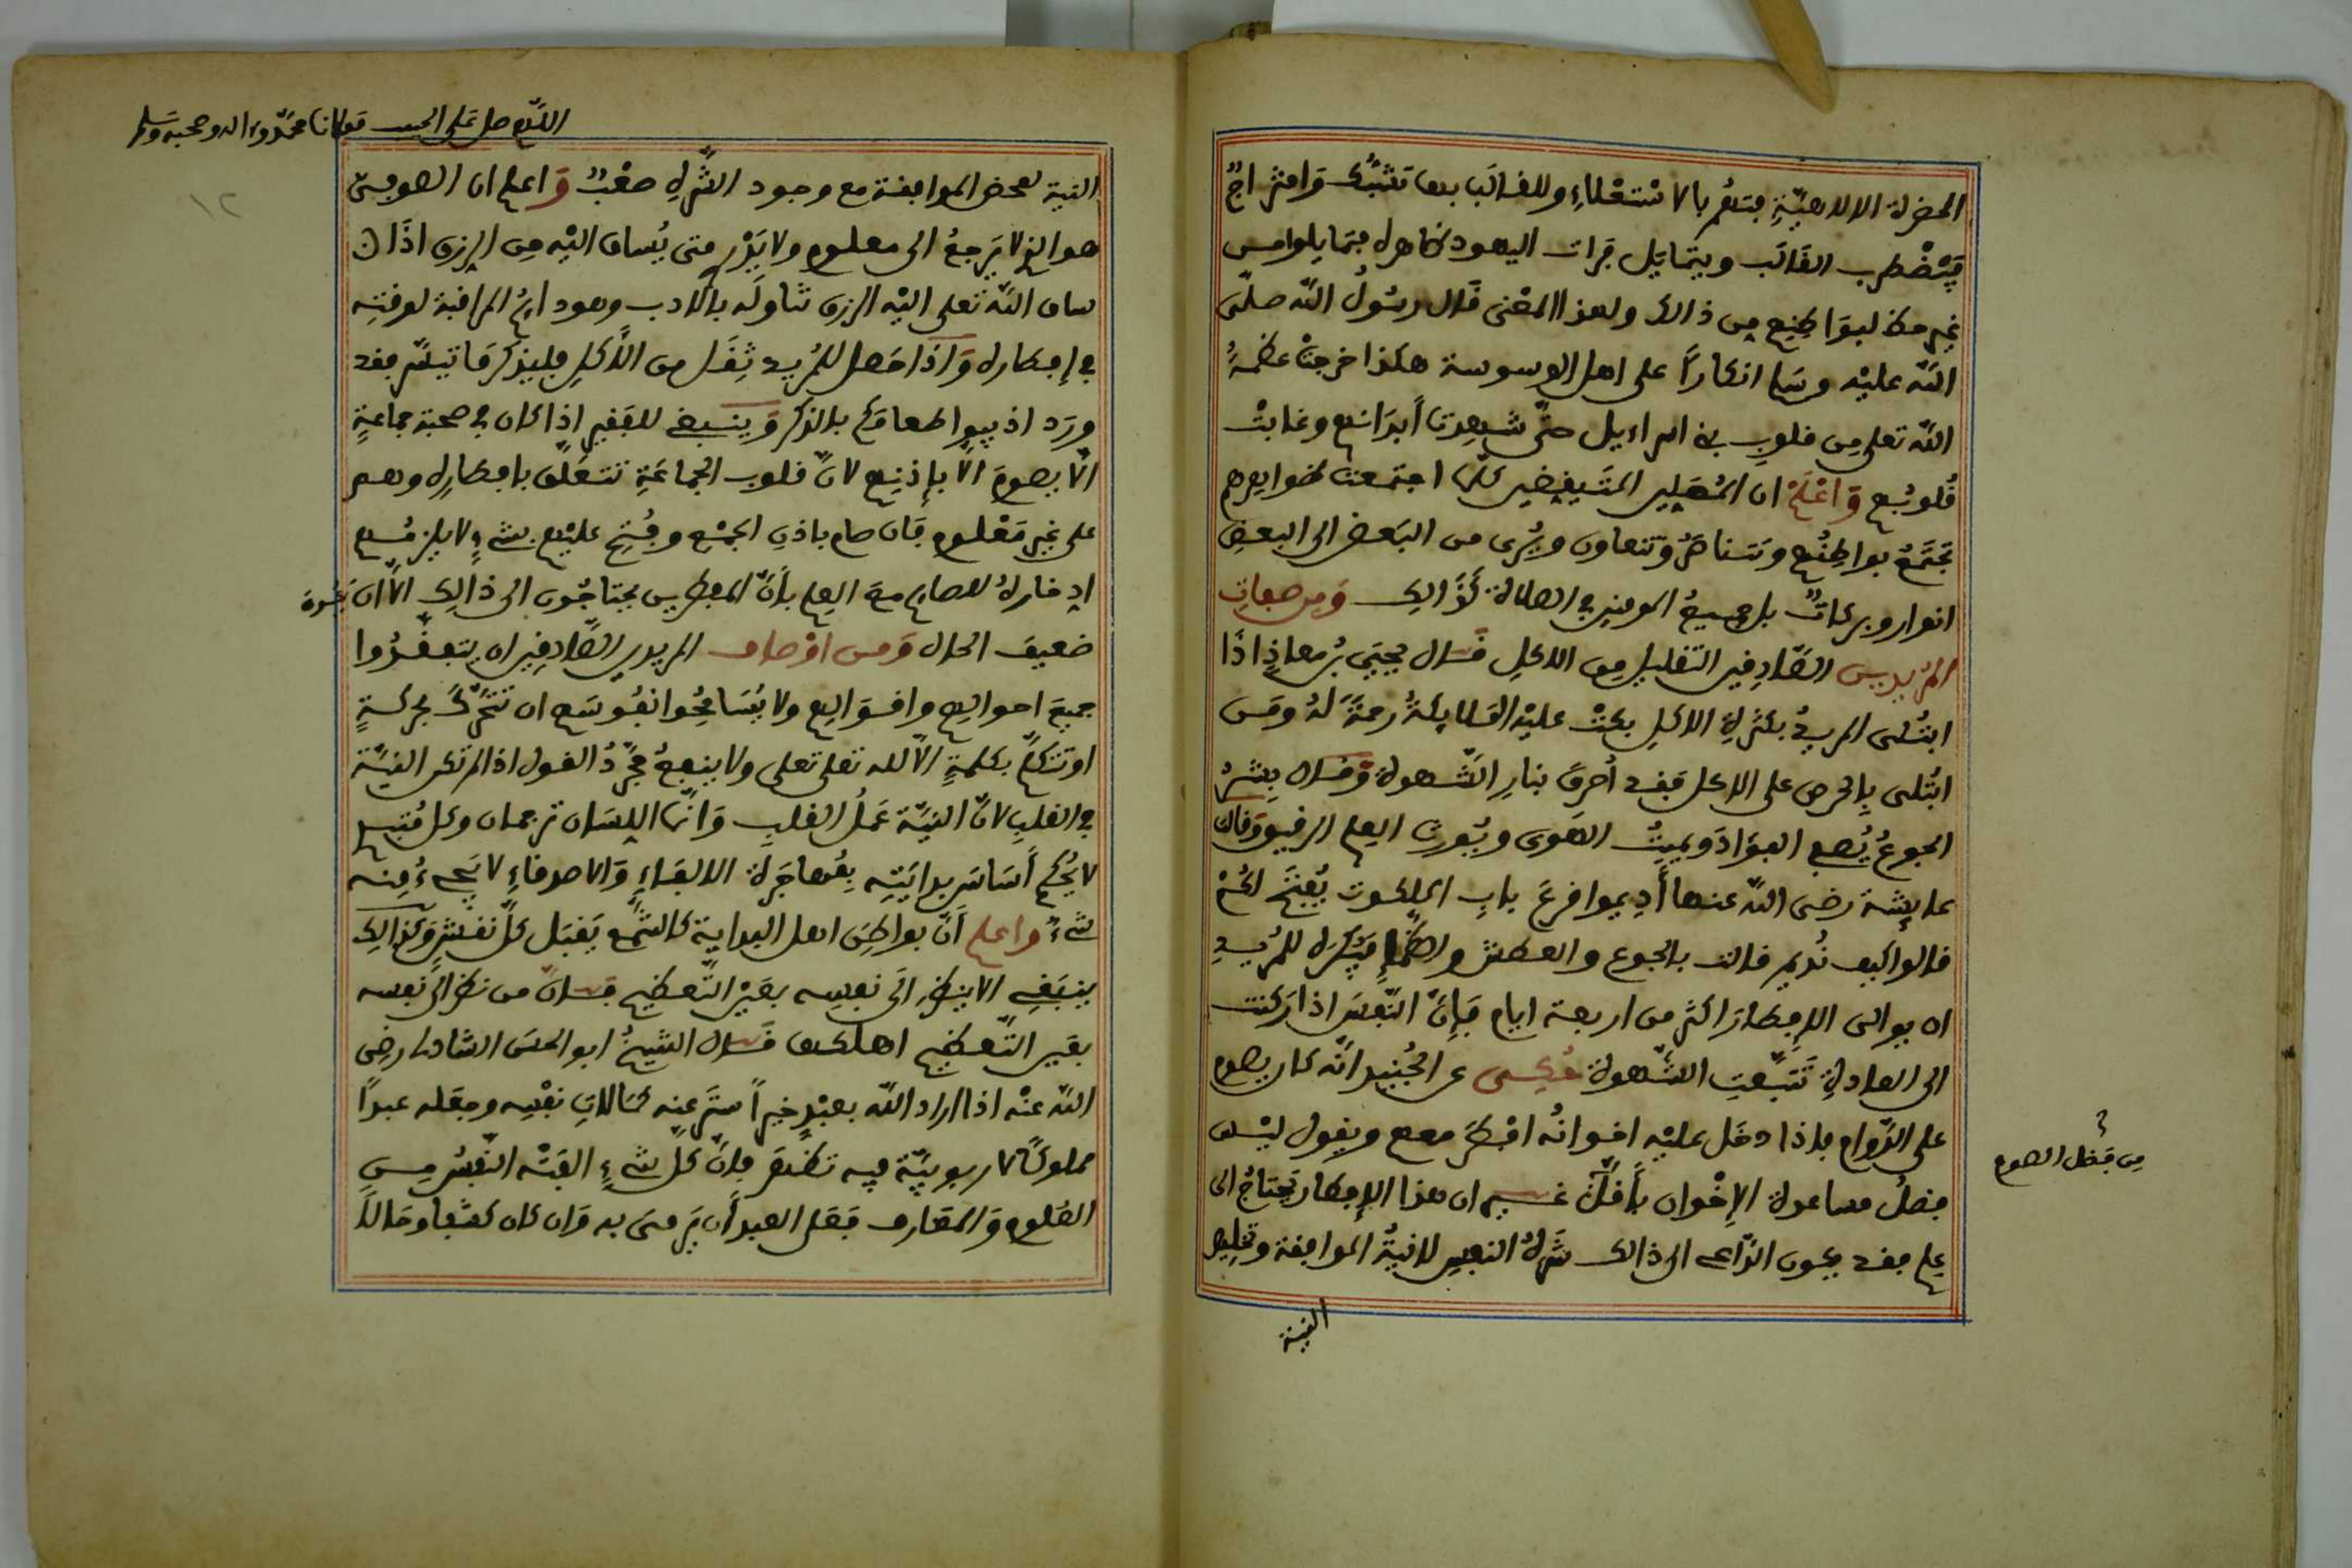 الحضرة الالاهيّةِ فتنعمر بالاستعلاءِ وللقالَب بها تشبُّك وامتزاجٌ
فيَضْطرب القالَب ويتمايل فرات اليهود ظاهره فتمايلوا من
غير حظ لبواطنهم من ذالك ولهذا المعْنى قال رسُولُ اللّه صلّى
اللّه عليْه وسَلم انكاراً على اهل الوسوسة هكذا خرجتْ عظمةُ
اللّه تعلى مِن قلوبِ بني اسراءيل حتّى شهِدت أبدَانهم وغابتْ
قُلوبُهم وَاعْلمْ ان المُصَلين المتيقضين كلما اجتمعت ظواهرهم
تجتمَعُ بواطنُهم وتتناصَرُ وتتعاون ويُسْرى من البعض الى البعضِ
انوار وبركاتٌ بل جميعُ المومنين في الصلاة كذَالِك وَمِن صفاتِ
المُريدين الصّادِقين التقليل مِن الاكل قال يحيَى بْن معاذٍ اذا
ابتُلى المريدُ بكثرةِ الاكلِ بكتْ عليْه الملايكةُ رحمَةً لَهُ ومَن
ابتُلى بالحرص على الاكل فقد أُحرِق بنارِ الشّهوة وقال بِشرٌ
الجوعُ يُصفي الفؤادَ ويميتُ الهَوى ويُورث العِلم الرقيق وقالت
عايشة رضى اللّه عنها أدِيموا قرعَ بابِ الملكوت يُفتحَ لكمْ
قالوا كيف نُديم قالت بالجوع والعطش والظمإ ويكرَه للمُريدِ
ان يوالى الإفطار اكثر من اربعة ايام فإنّ النّفسَ اذا ركنت
الى العادةِ تتبّعتِ الشّهوة حُكى عن الجُنَيد انّه كان يصوم
على الدّوام فاذا دخَل عليْه اخوانُه افْطرَ معهم ويقول ليْس
فضلُ مساعدة الإخْوان بأقلّ غير ان هذا الإفطار يَحتاجُ الى
عِلم فقد يكون الدّاعى الى ذالك شَرهُ النفسِ لا نيةُ الموافقة وتخليص
مِن فضل الصوم
النية
اللّهم صل على الحبيب مولانا محمّد وءاله وصحبه وسلم
١٢
النية لمحض الموافقة مع وجود الشَّرهِ صعْبٌ وَاعلم ان الصوفيّ
هو الذى لا يَرجعُ الى معلوم ولا يَدْر متى يُساق اليْه مِن الرزق اذا
ساق اللّه تعلى اليْه الرزق تناوَله بالادب وهو دايمُ المراقبة لوقتِه
في إفطاره وَاذا حَصل للمُريد ثِقَل من الأكلِ فليذكر مَا تيسّر فقد
ورَد اذيبوا طعامَكم بالذكر وَينبغى للفقير اذا كان في صحبة جماعةٍ
الّا يصومَ الّا بإذنِهم لانّ قلوب الجماعَةِ تتعَلّق بافطارِه وهم
على غيرِ مَعْلوم فان صام باذنِ الجمْع وفُتح عليْهم بشىءٍ لا يلزمُهم
ادِخارهُ للصايم مع العِلم بأنّ المفطرين يحتاجُون الى ذَالِك الّا ان يكون
ضعيفَ الحال وَمن اوْصاف المريدين الصّادِقين ان يتفقّدُوا
جميعَ احوالِهم واقوالِهم ولا يُسَامحُوا نفُوسَهم ان تتحَرّكَ بحركةٍ
او تتكلّم بكلمةٍ الّا لله تعلى تعلى ولا ينفعُ مجَرّدُ القول اذا لم تكن النيّة
في القلبِ لانّ النيّة عَمَلُ القلبِ وَانّما اللِسَان ترجمان وكل مُنتبِه
لا يُحكم أسَاسَ بدايَتِه بمُهاجَرة الالِفاءِ وَالاصدقاءِ لا يَجىءُ مِنه
شىءٌ واعلم أنّ بواطِنَ اهل البداية كالشَّمع يَقبَل كلّ نقشٍ وَكذالِك
ينبَغى الا ينظرَ الى نفسِه بعَيْن التّعظيم فانّ من نظر الى نفسِه
بعَين التّعظيم اهلكها قال الشيخُ ابو الحسَن الشاذلى رضى
اللّه عنْه اذا اراد اللّه بعبْدٍ خيراً ستَر عنه كمَالاتِ نفْسِه وجعَله عبداً
مملوكاً لا ربوبيّة فيه تظهر فإنّ كلّ شىءٍ الفتْه النّفْسُ مِن
العُلوم وَالمعَارف فعَلى العبد أن يَرمىَ به وَان كان كشفا وحَالاً